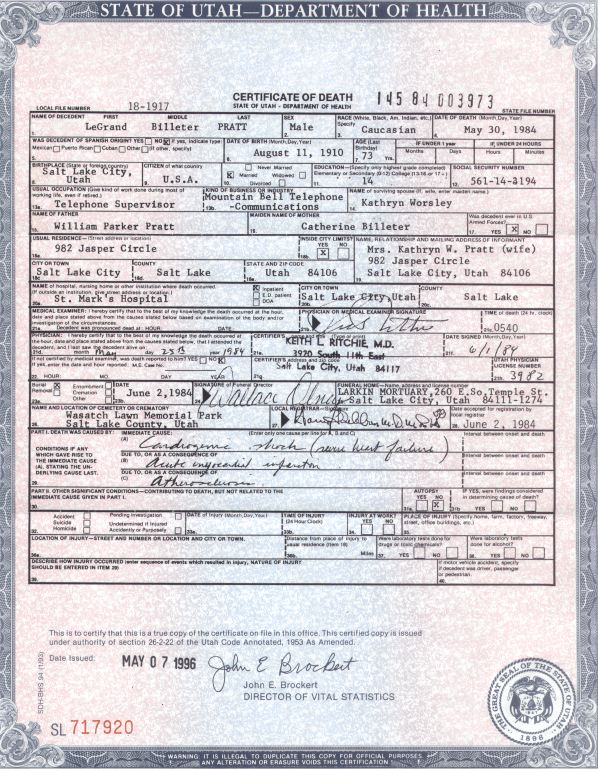 STATE OF UTAH—DEPARTMENT OF HEALTH
CERTIFICATE OF DEATH 145 84 003973
LOCAL FILE NUMBER 18-1917 STATE OF UTAH - DEPARTMENT OF HEALTH STATE FILE NUMBER
NAME OF DECEDENT FIRST MIDDLE LAST SEX RACE (White, Black, Am. Indian, etc.) DATE OF DEATH (Month, Day, Year)
1. LeGrand Billeter PRATT 2. Male 3. Specify Caucasian 4. May 30, 1984
WAS DECEDENT OF SPANISH ORIGIN? YES NO X If yes, indicate type: DATE OF BIRTH (Month, Day, Year) AGE (Last Birthday) IF UNDER 1 YEAR IF UNDER 24 HOURS
Mexican Puerto Rican Cuban Other (If other, specify) August 11, 1910 73 Yrs. Months Days Hours Minutes
BIRTHPLACE (State or foreign country) CITIZEN of what country Never Married EDUCATION—(Specify only highest grade completed) SOCIAL SECURITY NUMBER
Salt Lake City, Utah U.S.A. X Married Widowed Divorced Elementary or Secondary (0-12) College (13-16 or 17+) 14 561-14-3194
USUAL OCCUPATION (Give kind of work done during most of working life, even if retired.) KIND OF BUSINESS OR INDUSTRY NAME of surviving spouse (If wife, enter maiden name.)
13a. Telephone Supervisor 13b. Mountain Bell Telephone -Communications 14. Kathryn Worsley
NAME OF FATHER MAIDEN NAME OF MOTHER Was decedent ever in U.S. Armed Forces?
15. William Parker Pratt 16. Catherine Billeter 17. YES X NO
USUAL RESIDENCE—(Street address or location) INSIDE CITY LIMITS? NAME, RELATIONSHIP AND MAILING ADDRESS OF INFORMANT
18a. 982 Jasper Circle YES X NO Mrs. Kathryn W. Pratt (wife)
CITY OR TOWN COUNTY STATE AND ZIP CODE 982 Jasper Circle
Salt Lake City Salt Lake Utah 84106 19. Salt Lake City, Utah 84106
Name of hospital, nursing home or other institution where death occurred. (If outside an institution, give street address or location.) X Inpatient E.D. patient DOA CITY OR TOWN COUNTY
20a. St. Mark's Hospital 20b. Salt Lake City, Utah Salt Lake
MEDICAL EXAMINER: I hereby certify that to the best of my knowledge the death occurred at the hour, date and place stated above from the causes stated below based on examination of the body and/or investigation of the circumstances. PHYSICIAN OR MEDICAL EXAMINER SIGNATURE TIME of death (24 hr. clock)
21a. Decedent was pronounced dead at: HOUR: DATE: 21b. 21c. 0540
PHYSICIAN: I hereby certify that to the best of my knowledge the death occurred at the hour, date and place stated above from the causes stated below, that I attended the decedent, and I last saw the decedent alive on: CERTIFIER'S KEITH L. RITCHIE, M.D. DATE SIGNED (Month, Day, Year)
21d. month May day 25th year 1984 3920 South 11th East 21f. 6/1/84
If not certified by medical examiner, was death reported to him? YES NO X CERTIFIER'S Salt Lake City, Utah 84117 UTAH PHYSICIAN LICENSE NUMBER
If yes, enter the date and hour reported: M.E. Case No.
22. HOUR: MO. DAY YEAR 21h. 3982
Burial X Entombment Cremation Removal Donation Other DATE SIGNATURE of Funeral Director FUNERAL HOME—Name, address and license number
23a. 23b. June 2, 1984 24. LARKIN MORTUARY, 260 E. So. Temple St. Salt Lake City, Utah 84111-1274
NAME AND LOCATION OF CEMETERY OR CREMATORY LOCAL REGISTRAR—Signature Date accepted for registration by local registrar
26. Wasatch Lawn Memorial Park Salt Lake County, Utah 27. 28. June 2, 1984
PART I. DEATH WAS CAUSED BY: IMMEDIATE CAUSE: Enter only one cause per line for A, B and C) Interval between onset and death
CONDITIONS IF ANY WHICH GAVE RISE TO THE IMMEDIATE CAUSE (A), STATING THE UNDERLYING CAUSE LAST. (A) Cardiogenic shock (severe heart failure)
DUE TO, OR AS A CONSEQUENCE OF Interval between onset and death
(B) Acute myocardial infarction
DUE TO, OR AS A CONSEQUENCE OF Interval between onset and death
29. (C) Atherosclerosis
PART II. OTHER SIGNIFICANT CONDITIONS—CONTRIBUTING TO DEATH, BUT NOT RELATED TO THE IMMEDIATE CAUSE GIVEN IN PART I. AUTOPSY IF YES, were findings considered in determining cause of death?
30. 31a. YES NO X 31b. YES NO
Accident Suicide Homicide Pending investigation Undetermined if Injured Accidently or Purposely DATE OF INJURY (Month, Day, Year) TIME OF INJURY (24 Hour Clock) INJURY AT WORK? YES NO PLACE OF INJURY (Specify home, farm, factory, freeway, street, office buildings, etc.)
LOCATION OF INJURY—STREET AND NUMBER OR LOCATION AND CITY OR TOWN. Distance from place of injury to usual residence (Item 18) Were laboratory tests done for drugs or toxic chemicals? Were laboratory tests done for alcohol?
36a. 36b. Miles 37. YES NO 38. YES NO
DESCRIBE HOW INJURY OCCURRED (enter sequence of events which resulted in injury, NATURE OF INJURY SHOULD BE ENTERED IN ITEM 29) If motor vehicle accident, specify if decedent was driver, passenger or pedestrian.
39. 40.
This is to certify that this is a true copy of the certificate on file in this office. This certified copy is issued
under authority of section 26-2-22 of the Utah Code Annotated, 1953 As Amended.
Date Issued: MAY 07 1996 John E Brockert
John E. Brockert
DIRECTOR OF VITAL STATISTICS
SDH-BHS 94 (1/93)
SL 717920
THE GREAT SEAL OF THE STATE OF UTAH
1896
WARNING: IT IS ILLEGAL TO DUPLICATE THIS COPY FOR OFFICIAL PURPOSES.
ANY ALTERATION OR ERASURE VOIDS THIS CERTIFICATION